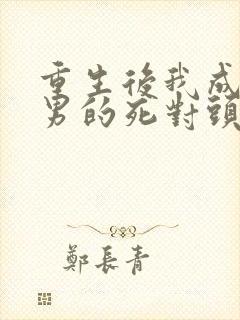 重生後我成
男的死對頭
鄭長青